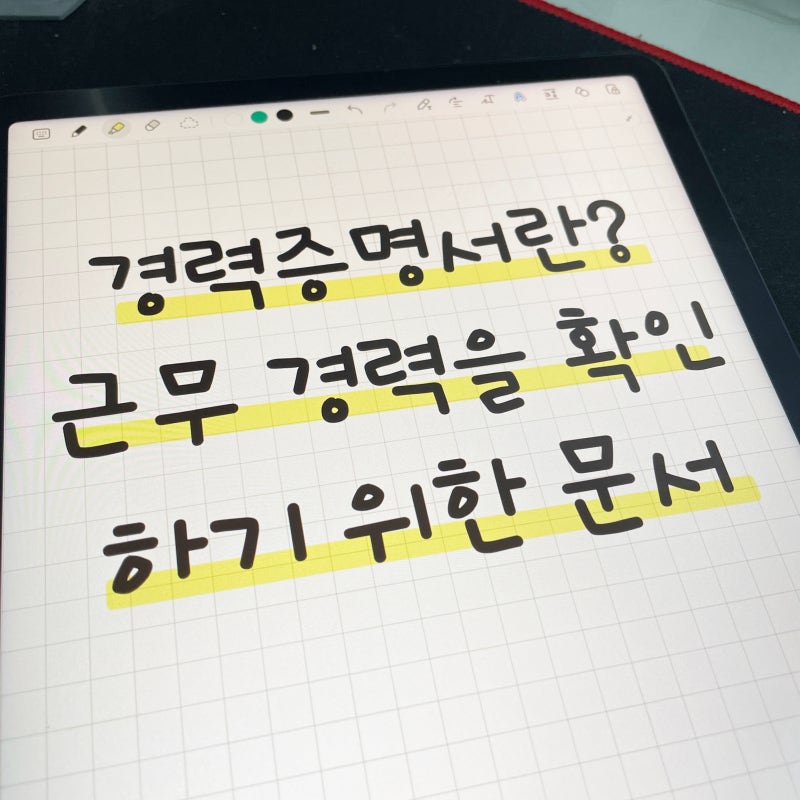 경력증명서란?
근무 경력을 확인
하기 위한 문서